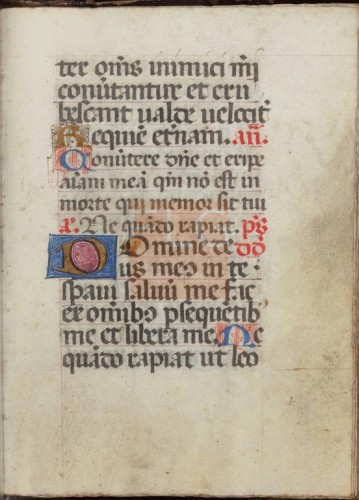 ter om̄s inimici mī
conūtantur et eru
bescant ualde uelocit̄
Requiē et̄nam. an̄.
Conūtere dn̄e et eripe
aīam meā qm̄ nō est in
morte qui memor sit tui
a. Ne quādo rapiat. ps̄
Domine de
us meus in te
speraui saluū me fac
ex omībꝫ ꝑsequētibꝫ
me et libera me. Ne
quādo rapiat ut leo